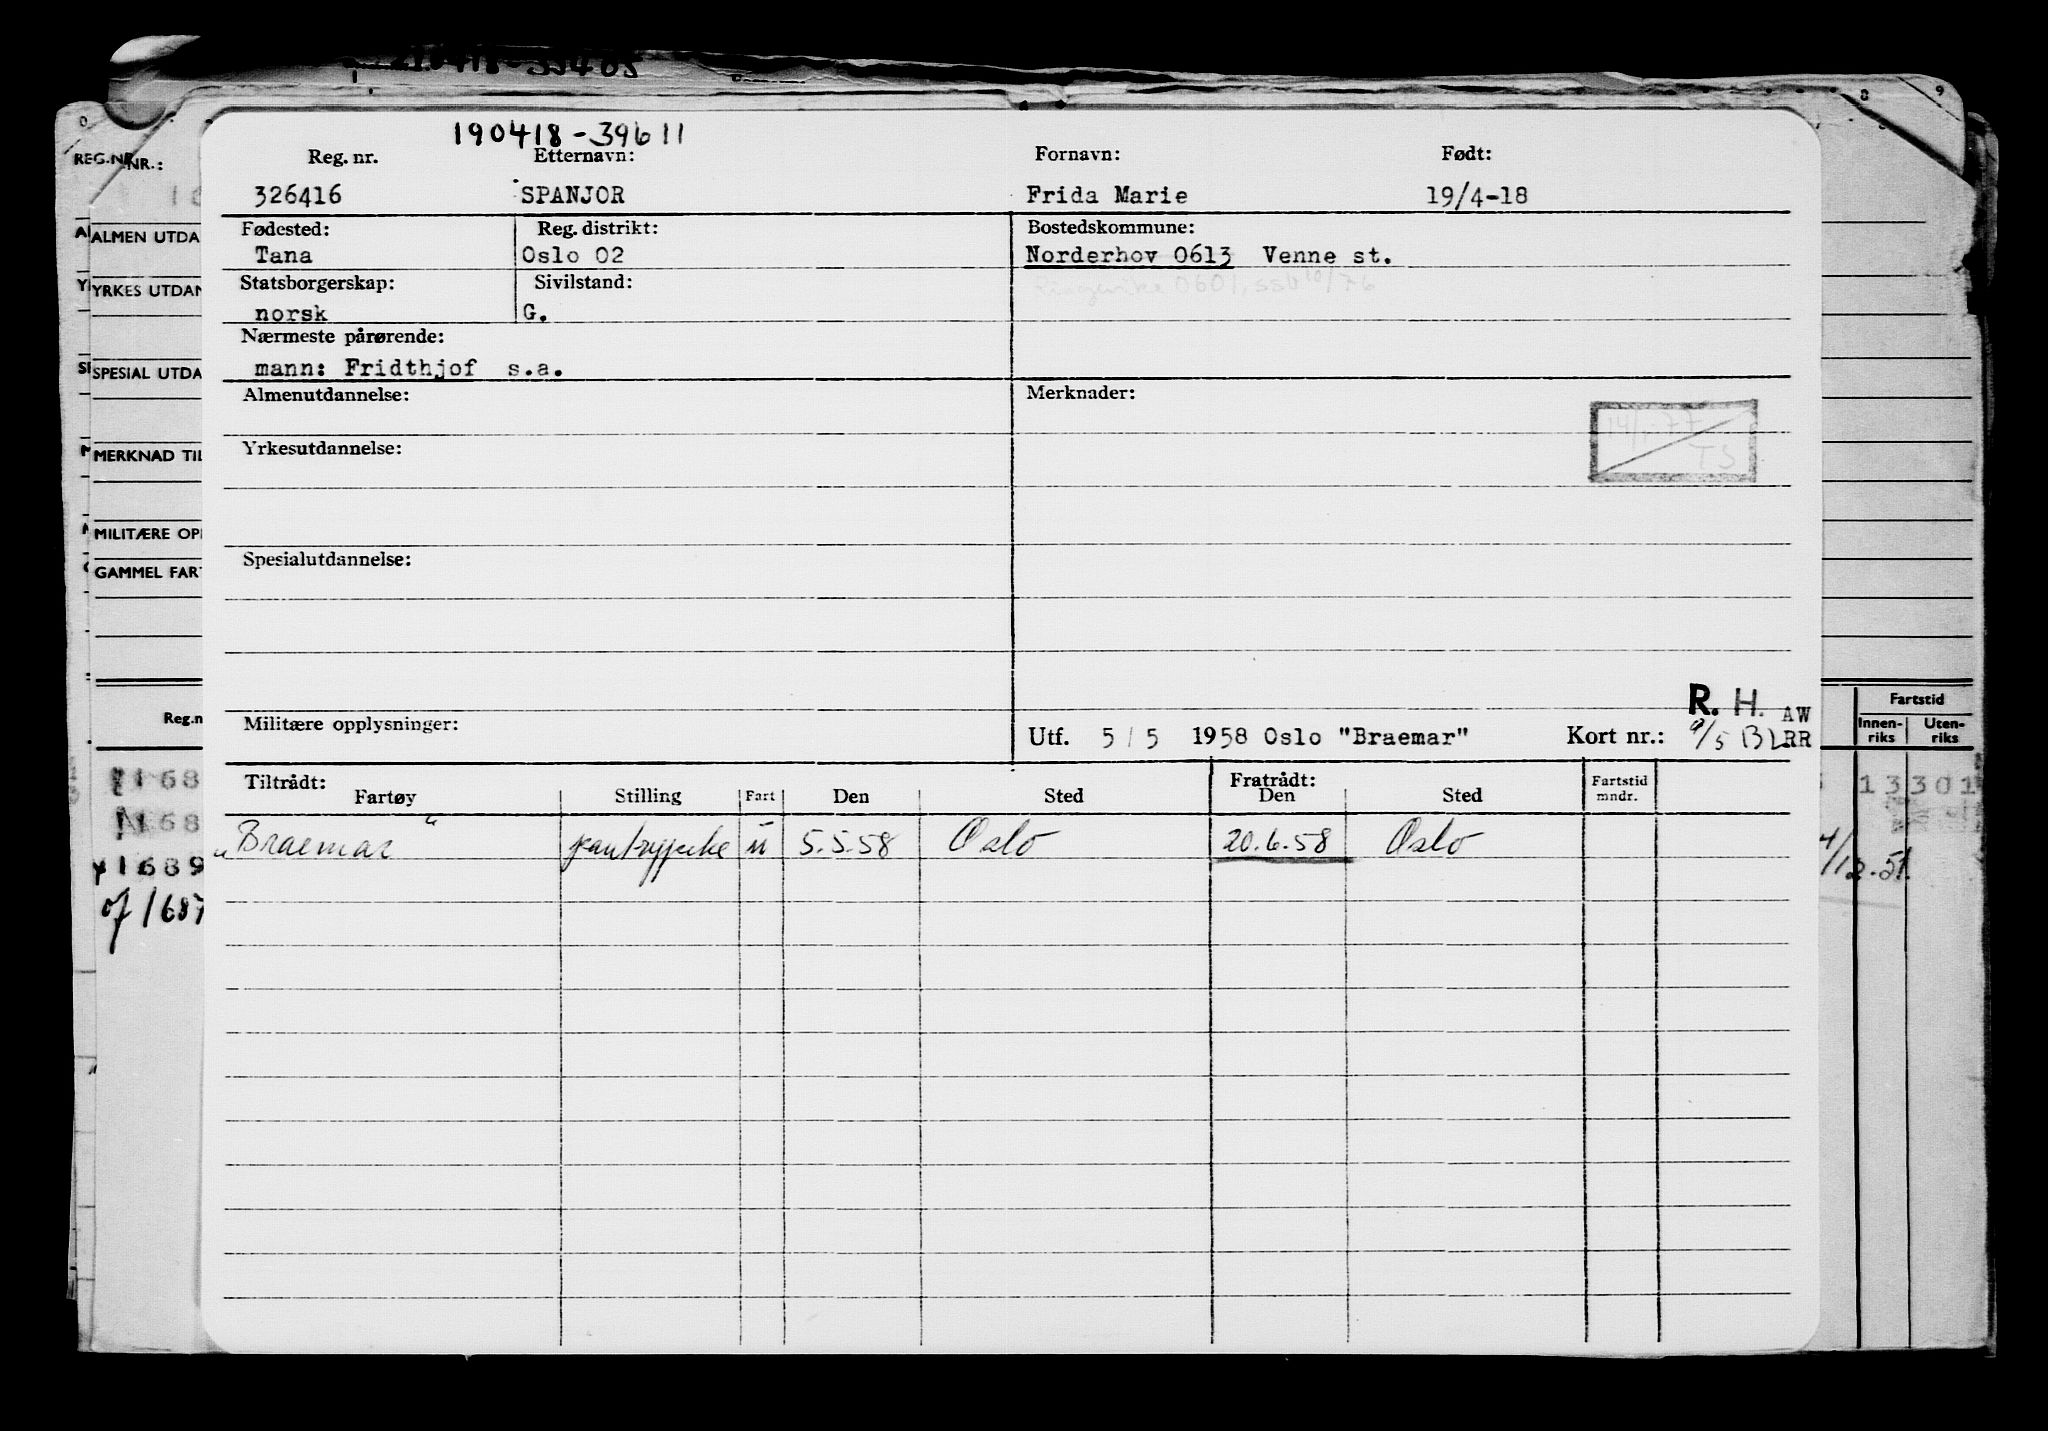 210418-33465
190418-39611
Reg. nr. Etternavn: Fornavn: Født:
326416 SPANJOR Frida Marie 19/4-18
Fødested: Reg. distrikt: Bostedskommune:
Tana Oslo 02 Norderhov 0613 Venne st.
Statsborgerskap: Sivilstand: Ringerike 0601, SSB 10/76
norsk G.
Nærmeste pårørende:
mann: Fridthjof s.a.
Almenutdannelse: Merknader:
14/1-77
TS
Yrkesutdannelse:
Spesialutdannelse:
R. H. AW
Militære opplysninger: Utf. 5/5 1958 Oslo "Braemar" Kort nr.: 9/5 BL RR
Tiltrådt: Fratrådt:
Fartøy Stilling Fart Den Sted Den Sted Fartstid mndr.
"Braemar" u 5.5.58 Oslo 20.6.58 Oslo
REG.NR.:
ALMEN UTDA
YRKES UTDAN
SPESIAL UTDA
MERKNAD TIL
MILITÆRE OPP
GAMMEL FART
Reg.n
168
168
1689
of 1687
8 9
Fartstid
Innen-riks Uten-riks
13 301
4/12.51